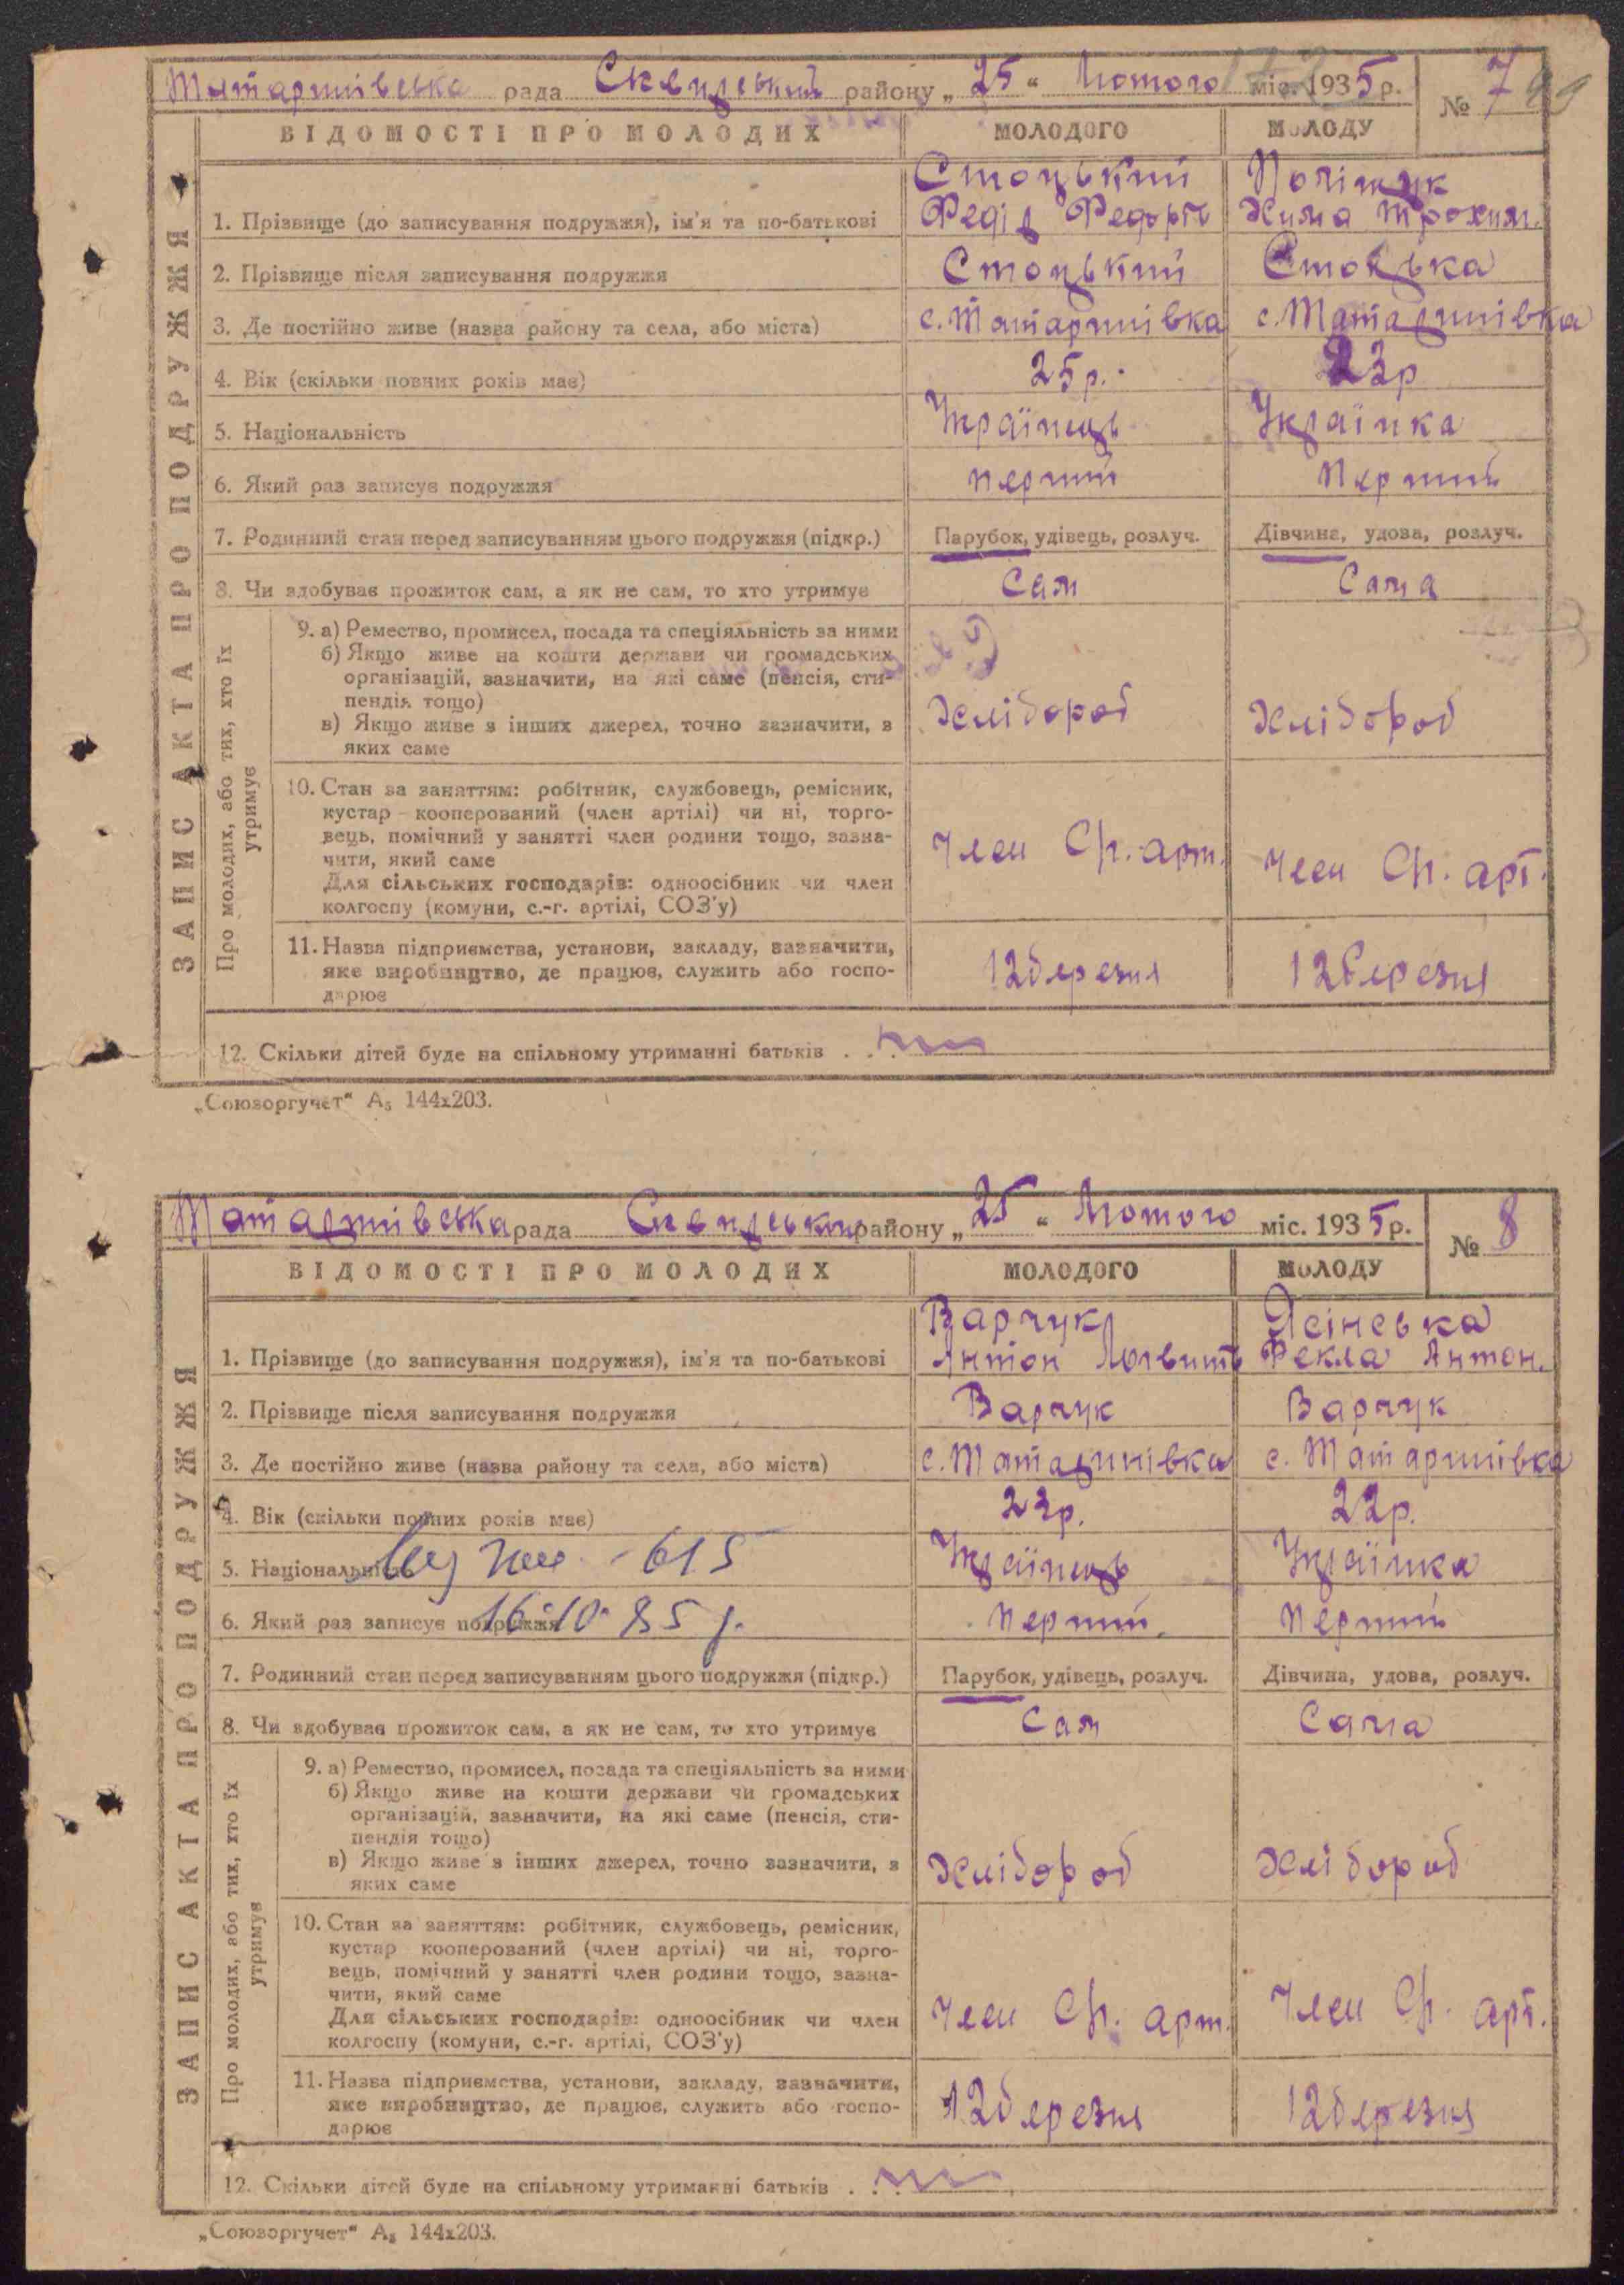 Татаршівська рада Сквирський району „ 25 “ Лютого міс. 1935 р. № 7
ВІДОМОСТІ ПРО МОЛОДИХ МОЛОДОГО МОЛОДУ
ЗАПИС АКТА ПРО ПОДРУЖЖЯ
Стоцький Поліщук
1. Прізвище (до записування подружжя), ім'я та по-батькові Федір Федорів Хима Трохим.
2. Прізвище після записування подружжя Стоцький Стоцька
3. Де постійно живе (назва району та села, або міста) с. Татаршівка с. Татаршівка
4. Вік (скільки повних років має) 25 р. 23 р
5. Національність Українець Українка
6. Який раз записує подружжя перший перший
7. Родинний стан перед записуванням цього подружжя (підкр.) Парубок, удівець, розлуч. Дівчина, удова, розлуч.
8. Чи здобуває прожиток сам, а як не сам, то хто утримує Сам Сама
Про молодих, або тих, хто їх утримує
9. а) Ремество, промисел, посада та спеціяльність за ними
б) Якщо живе на кошти держави чи громадських
організацій, зазначити, на які саме (пенсія, сти-
пендія тощо)
в) Якщо живе з інших джерел, точно зазначити, з
яких саме
хлібороб хлібороб
10. Стан за заняттям: робітник, службовець, ремісник,
кустар - кооперований (член артілі) чи ні, торго-
вець, помічний у занятті член родини тощо, зазна-
чити, який саме
Для сільських господарів: одноосібник чи член
колгоспу (комуни, с.-г. артілі, СОЗ'у)
член Ср. арт. член Ср. арт.
11. Назва підприємства, установи, закладу, зазначити,
яке виробництво, де працює, служить або госпо-
дарює
12 березня 12 березня
12. Скільки дітей буде на спільному утриманні батьків . .
„Союзоргучет“ А₅ 144х203.
Татаршівська рада Сквирський району „ 25 “ Лютого міс. 1935 р. № 8
ВІДОМОСТІ ПРО МОЛОДИХ МОЛОДОГО МОЛОДУ
ЗАПИС АКТА ПРО ПОДРУЖЖЯ
Варчук Ясінська
1. Прізвище (до записування подружжя), ім'я та по-батькові Антон Логвинів Фекла Антон.
2. Прізвище після записування подружжя Варчук Варчук
3. Де постійно живе (назва району та села, або міста) с. Татаршівка с. Татаршівка
4. Вік (скільки повних років має) 22 р. 22 р.
5. Національність 615 Українець Українка
6. Який раз записує подружжя 16-10-85 г. перший перший
7. Родинний стан перед записуванням цього подружжя (підкр.) Парубок, удівець, розлуч. Дівчина, удова, розлуч.
8. Чи здобуває прожиток сам, а як не сам, то хто утримує Сам Сама
Про молодих, або тих, хто їх утримує
9. а) Ремество, промисел, посада та спеціяльність за ними
б) Якщо живе на кошти держави чи громадських
організацій, зазначити, на які саме (пенсія, сти-
пендія тощо)
в) Якщо живе з інших джерел, точно зазначити, з
яких саме
хлібороб хлібороб
10. Стан за заняттям: робітник, службовець, ремісник,
кустар кооперований (член артілі) чи ні, торго-
вець, помічний у занятті член родини тощо, зазна-
чити, який саме
Для сільських господарів: одноосібник чи член
колгоспу (комуни, с.-г. артілі, СОЗ'у)
член Ср. арт. член Ср. арт.
11. Назва підприємства, установи, закладу, зазначити,
яке виробництво, де працює, служить або госпо-
дарює
12 березня 12 березня
12. Скільки дітей буде на спільному утриманні батьків . .
„Союзоргучет“ А₅ 144х203.